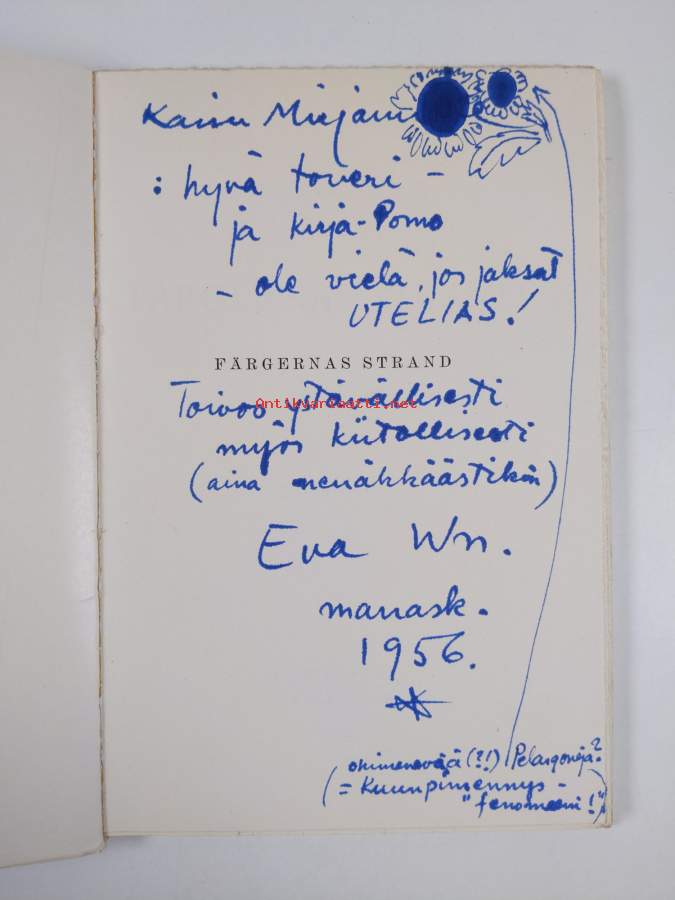 Kaisu Mirjami
: hyvä toveri -
ja kirja-Pomo
- ole vielä, jos jaksat
UTELIAS!
FÄRGERNAS STRAND
Antikvariaatti.net
Toivoo ystävällisesti
myös kiitollisesti
(aina nenäkkäästikin)
Eva Wn.
marrask.
1956.
ohimenevää (?!) Pelargoneja?
(= Kuunpimennys-
"fenomeeni!")